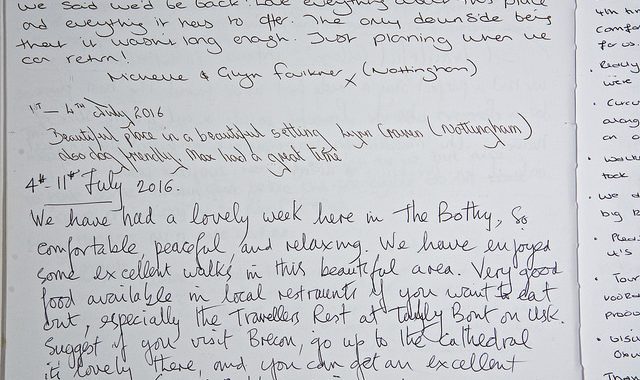 we said we'd be back! Love everything about this place
and everything it has to offer. The only downside being
that it wasn't long enough. Just planning when we
can return!
Michelle & Glyn Faulkner x (Nottingham)
1ST - 4TH July 2016
Beautiful place in a beautiful setting Lynn Craven (Nottingham)
also dog friendly, Max had a great time
4th - 11th July 2016.
We have had a lovely week here in The Bothy, So
comfortable, peaceful, and relaxing. We have enjoyed
some excellent walks in this beautiful area. Very good
food available in local restraunts if you want to eat
out, especially the Travellers Rest at Bont on Usk.
Suggest if you visit Brecon, go up to the Cathedral
it's lovely there, and you can get an excellent
4th
comfor
for us.
Really
were
along
on
took
we
big
Tour
produ
Than